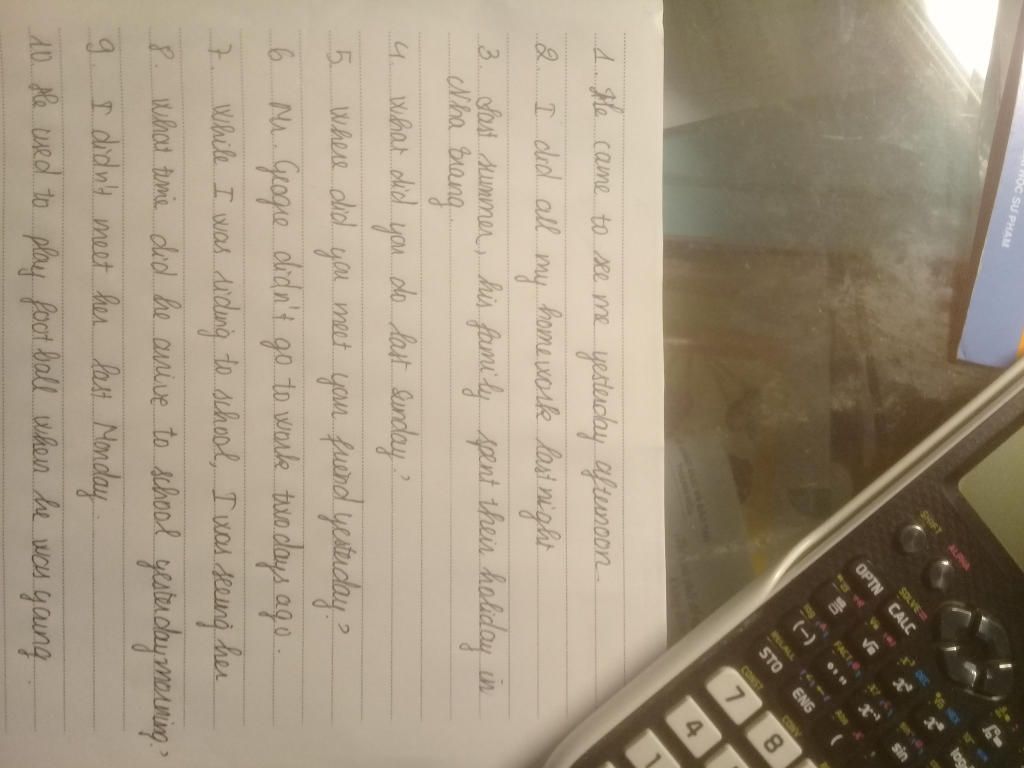 1. He came to se me yesterday afternoon.
2. I did all my homework last night
3. Last summer, his family spent their holiday in
Nha Trang.
4. What did you do last Sunday?
5. Where did you meet your friend yesterday?
6. Mr. Goge didn't go to work two days ago.
7. While I was riding to school, I was seeing her
8. What time did he arrive to school yesterday morning?
9. I didn't meet her last Monday.
10. He used to play football when he was young.
HỌC SƯ PHẠM
SHIFT
ALPHA
OPTN
CALC
STO
ENG
(
sin
(−)
CONST
7
8
4
1